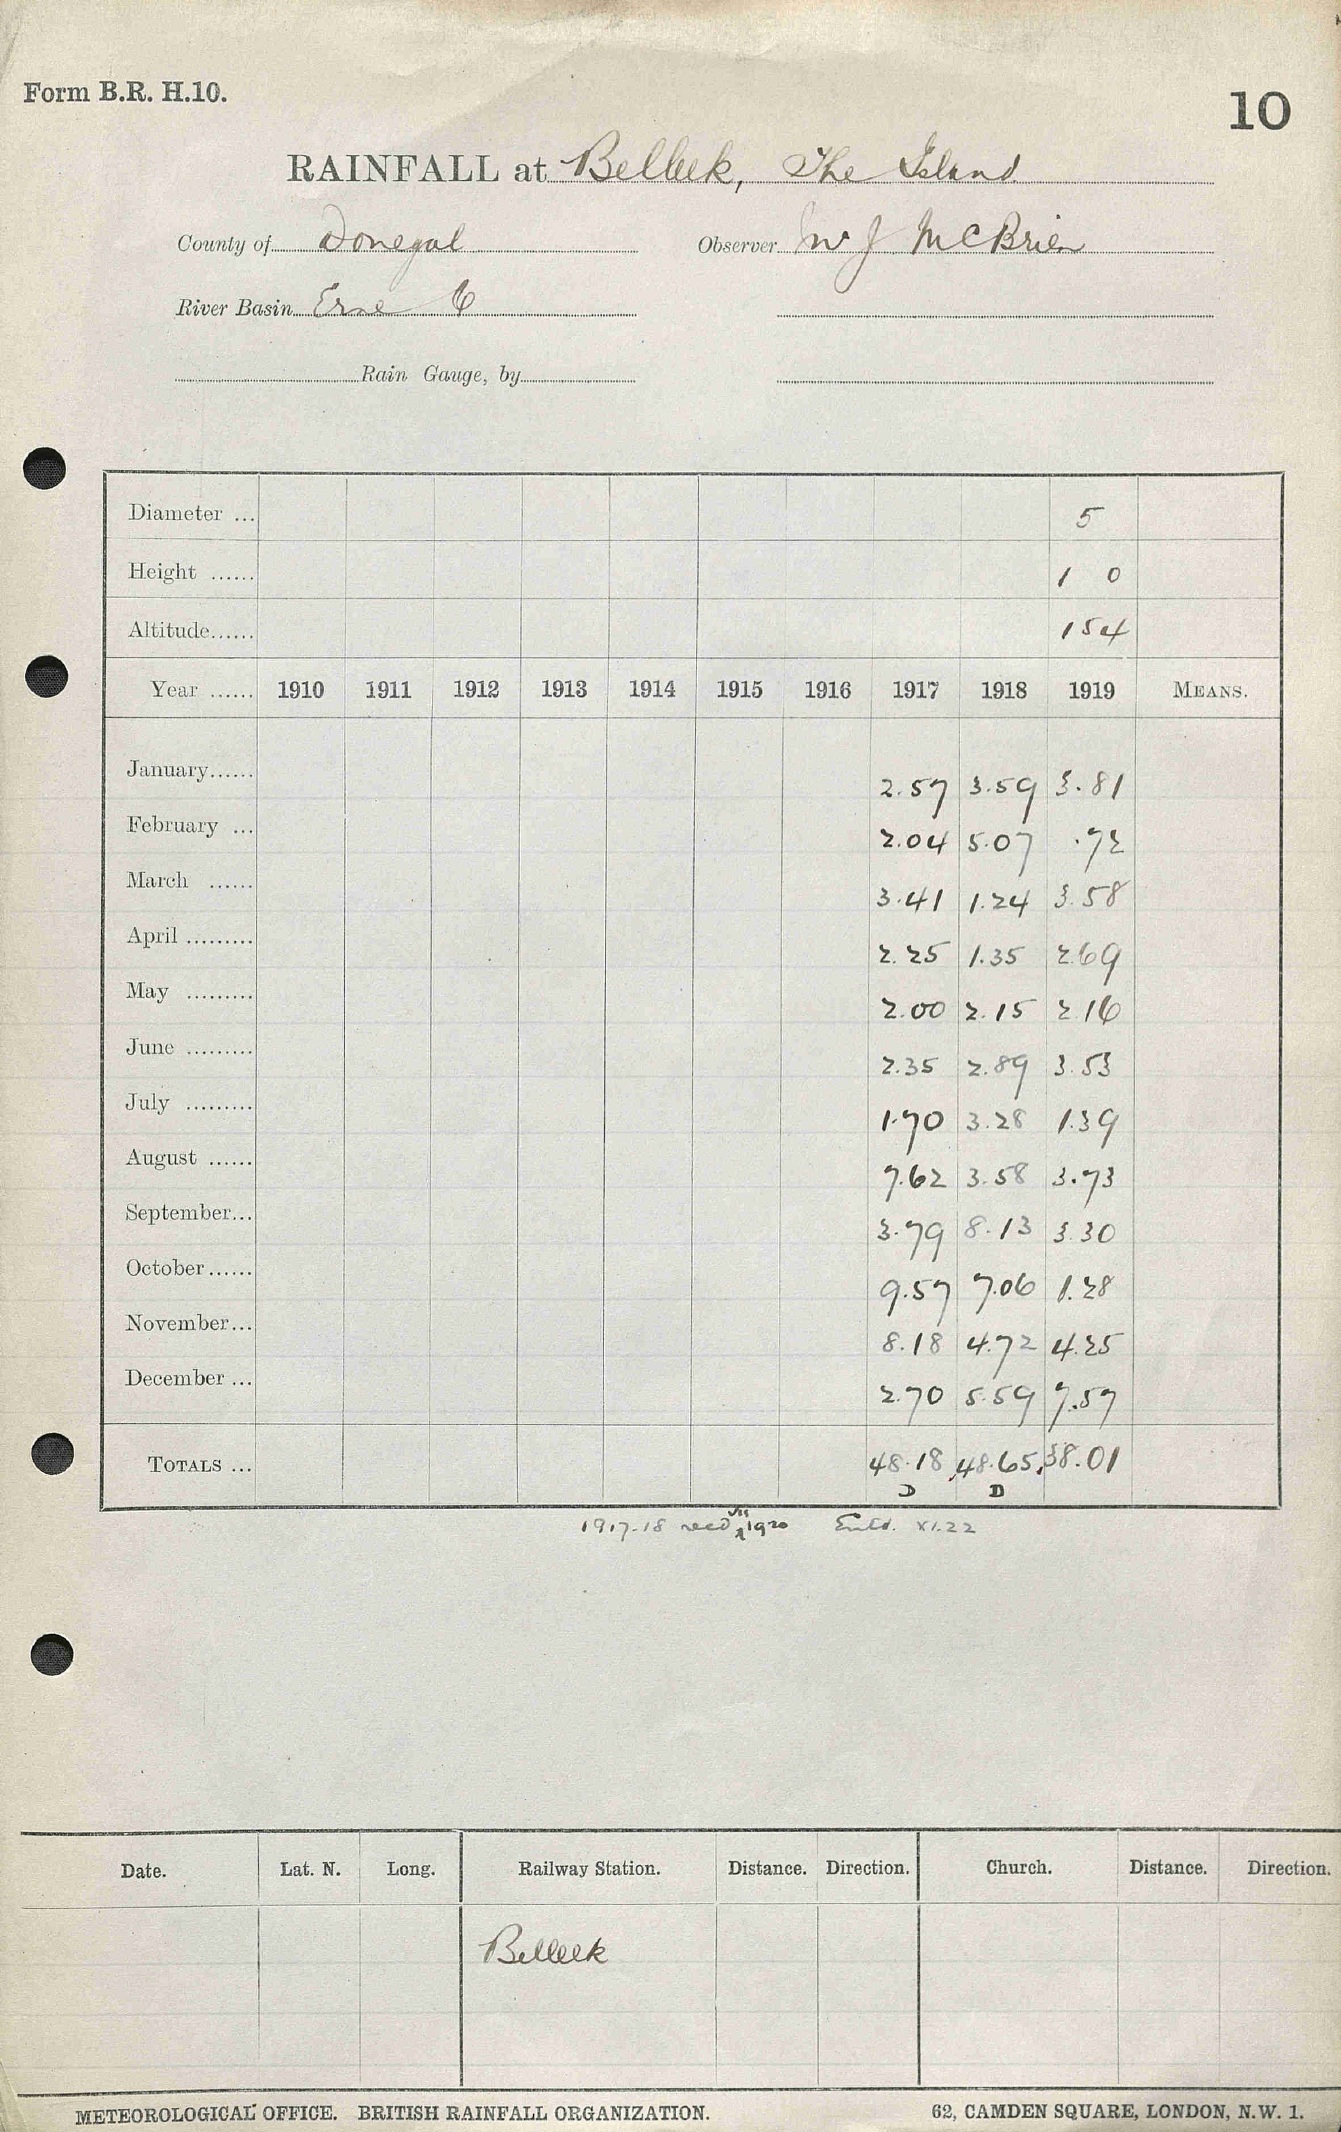 Form B.R. H.10.
10
RAINFALL at Belleek, The Island
County of Donegal Observer W J McBrien
River Basin Erne 6
Rain Gauge, by
Diameter ... 5
Height ...... 1 0
Altitude...... 154
Year ...... 1910 1911 1912 1913 1914 1915 1916 1917 1918 1919 MEANS.
January...... 2.57 3.59 3.81
February ... 2.04 5.07 .72
March ...... 3.41 1.24 3.58
April ......... 2.25 1.35 2.69
May ......... 2.00 2.15 2.16
June ......... 2.35 2.89 3.53
July ......... 1.70 3.28 1.39
August ...... 7.62 3.58 3.73
September... 3.79 8.13 3.30
October...... 9.57 7.06 1.28
November... 8.18 4.72 4.25
December ... 2.70 5.59 7.57
TOTALS ... 48.18 48.65 38.01
D D
1917-18 recd VII 1920 Entd. XI.22
Date. Lat. N. Long. Railway Station. Distance. Direction. Church. Distance. Direction.
Belleek
METEOROLOGICAL OFFICE. BRITISH RAINFALL ORGANIZATION. 62, CAMDEN SQUARE, LONDON, N.W. 1.